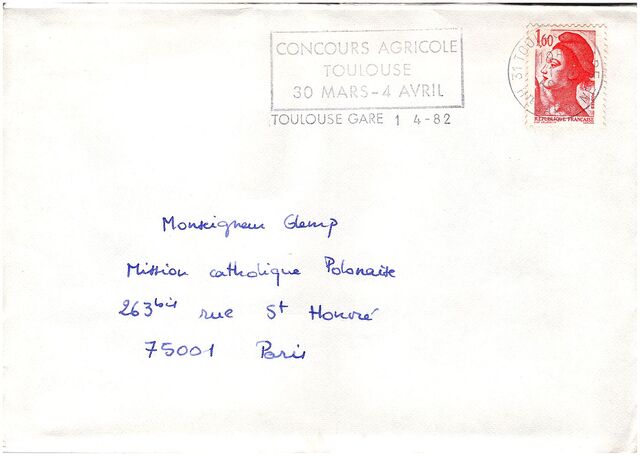 CONCOURS AGRICOLE
TOULOUSE
30 MARS-4 AVRIL
TOULOUSE GARE 1 4-82
1,60
RÉPUBLIQUE FRANÇAISE
31 TOUL
Monseigneur Glemp
Mission catholique Polonaise
263bis rue St Honoré
75001 Paris